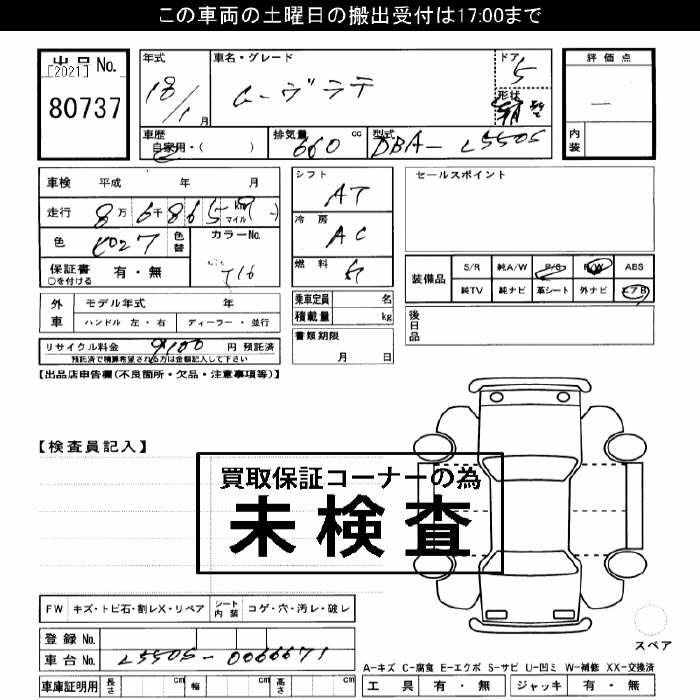 この車両の土曜日の搬出受付は17:00まで
出品No.
[2021]
80737
年式
18/1月
車名・グレード
ムーヴラテ
ドア
5
形状
評価点
—
内装
車歴
自家用・( )
排気量
660 cc
型式
DBA- L550S
車検 平成 年 月
走行 8万6千865 km マイル
色
色替
カラーNo.
T16
保証書 有・無
○を付ける
シフト
AT
冷房
AC
燃料
セールスポイント
装備品
S/R 純A/W P/S P/W ABS
純TV 純ナビ 革シート 外ナビ エアB
外車
モデル年式 年
ハンドル 左・右 ディーラー・並行
乗車定員 名
積載量 kg
後日品
リサイクル料金 9100 円 預託済
預託済で精算希望される方は金額記入して下さい
書類期限
月 日
【出品店申告欄(不良箇所・欠品・注意事項等)】
【検査員記入】
買取保証コーナーの為
未検査
FW キズ・トビ石・割レX・リペア シート内装 コゲ・穴・汚レ・破レ
登録No.
車台No. L550S-0066671
スペア
A-キズ C-腐食 E-エクボ S-サビ U-凹ミ W-補修 XX-交換済
車庫証明用 長さ cm 幅 cm 高さ cm
工具 有・無 ジャッキ 有・無